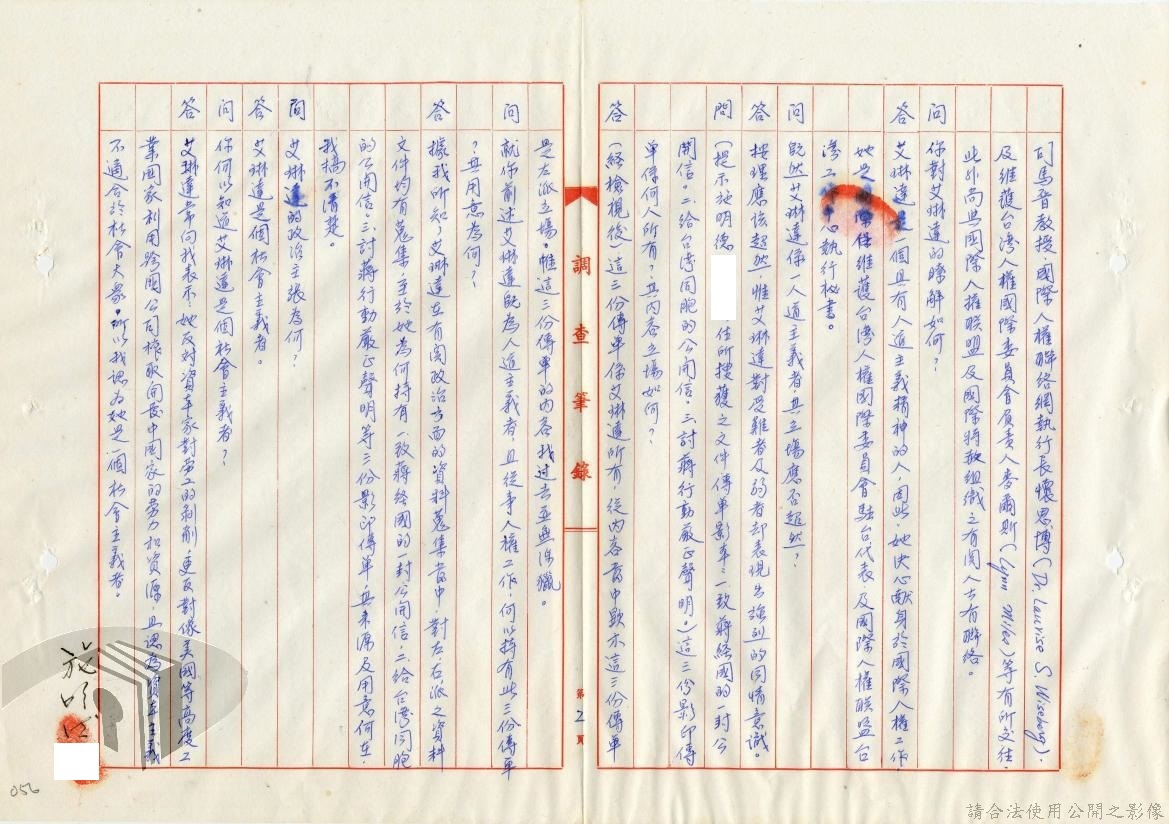 司馬晋教授,國際人權聯絡網執行長懷思博(Dr. Laurise S. Wiseberg)
及維護台灣人權國際委員會負責人麥爾斯(Lynn Miles)等有所交往,
此外尚與國際人權聯盟及國際特赦組織之有關人士有聯絡。
問 你對艾琳達的瞭解如何?
答 艾琳達是一個具有人道主義精神的人,因此,她決心献身於國際人權工作,
她是國際維護台灣人權國際委員會駐台代表及國際人權联盟台
灣工作中心執行祕書。
問 既然艾琳達係一人道主義者,其立場應否超然?
答 按理應該超然,惟艾琳達對受難者及弱者却表現出強烈的同情意識。
問 (提示施明德 住所搜獲之文件傳單影本:一致蔣經國的一封公
開信。二給台湾同胞的公開信,三討蔣行動嚴正聲明。)這三份影印傳
單係何人所有?其內容立場如何?
答 (經檢視後)這三份傳單係艾琳達所有,從內容當中顯示這三份傳單
調查筆錄
第2頁
是左派立場。惟這三份傳單的內容我过去並無涉獵。
問 就你前述艾琳達既為人道主義者,且從事人權工作,何以持有此三份傳單
?其用意為何?
答 據我所知,艾琳達在有関政治方面的資料蒐集當中,對左右派之資料
文件均有蒐集,至於她為何持有一致蔣經國的一封公開信,二給台湾同胞
的公開信,三討蔣行動嚴正聲明等三份影印傳單,其來源及用意何在,
我搞不清楚。
問 艾琳達的政治主張為何?
答 艾琳達是個社會主義者。
問 你何以知道艾琳達是個社會主義者?
答 艾琳達常向我表示她反对資本家對勞工的剥削,更反對像美國等高度工
業國家利用跨國公司榨取開發中國家的勞力和資源,且認為資本主義
不適合於社會大衆,所以我認為她是一個社會主義者。
施明德
056
請合法使用公開之影像